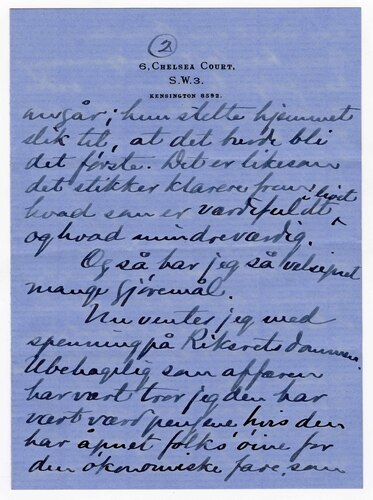 2
6, CHELSEA COURT,
S.W.3.
KENSINGTON 8592.
angår; hun stelte hjemmet
slik til, at det burde bli
det første. Det er likesom
det stikker klarere frem i livet
hvad som er værdifuldt
og hvad mindreværdig.
Og så har jeg så velsignet
mange gjøremål.
Nu venter jeg med
spenning på Riksretsdommen.
Ubehagelig som affæren
har vært tror jeg den har
vært værd pengene hvis den
har åpnet folks' öine for
den ökonomiske fare, som